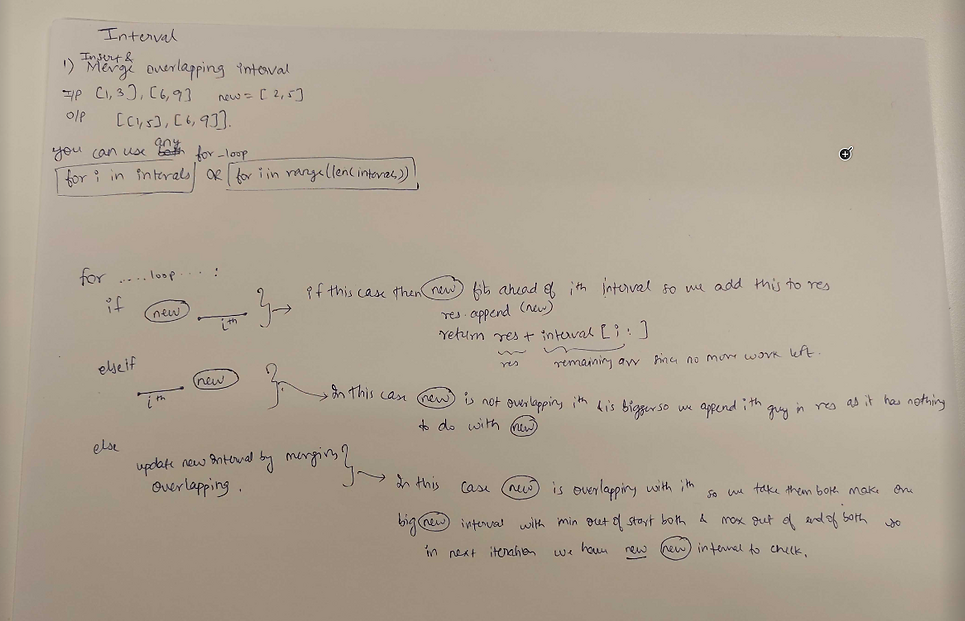 Interval
Insert &
1) Merge overlapping interval
I/P [1,3], [6,9] new = [2,5]
O/P [[1,5], [6,9]].
you can use any for-loop
for i in intervals OR for i in range(len(intervals))
for .....loop....:
if new ith } → if this case then new fits ahead of ith interval so we add this to res
res.append(new)
return res + interval[i:]
res remaining arr since no more work left.
elseif
ith new } → In this case new is not overlapping ith & is bigger so we append ith guy in res as it has nothing
to do with new
else
update new interval by merging
overlapping. } → In this case new is overlapping with ith so we take them both make one
big new interval with min out of start both & max out of end of both so
in next iteration we have new new interval to check.